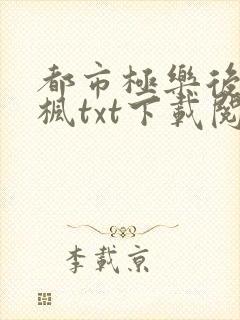 都市極樂後
楓txt下載閱
李載京